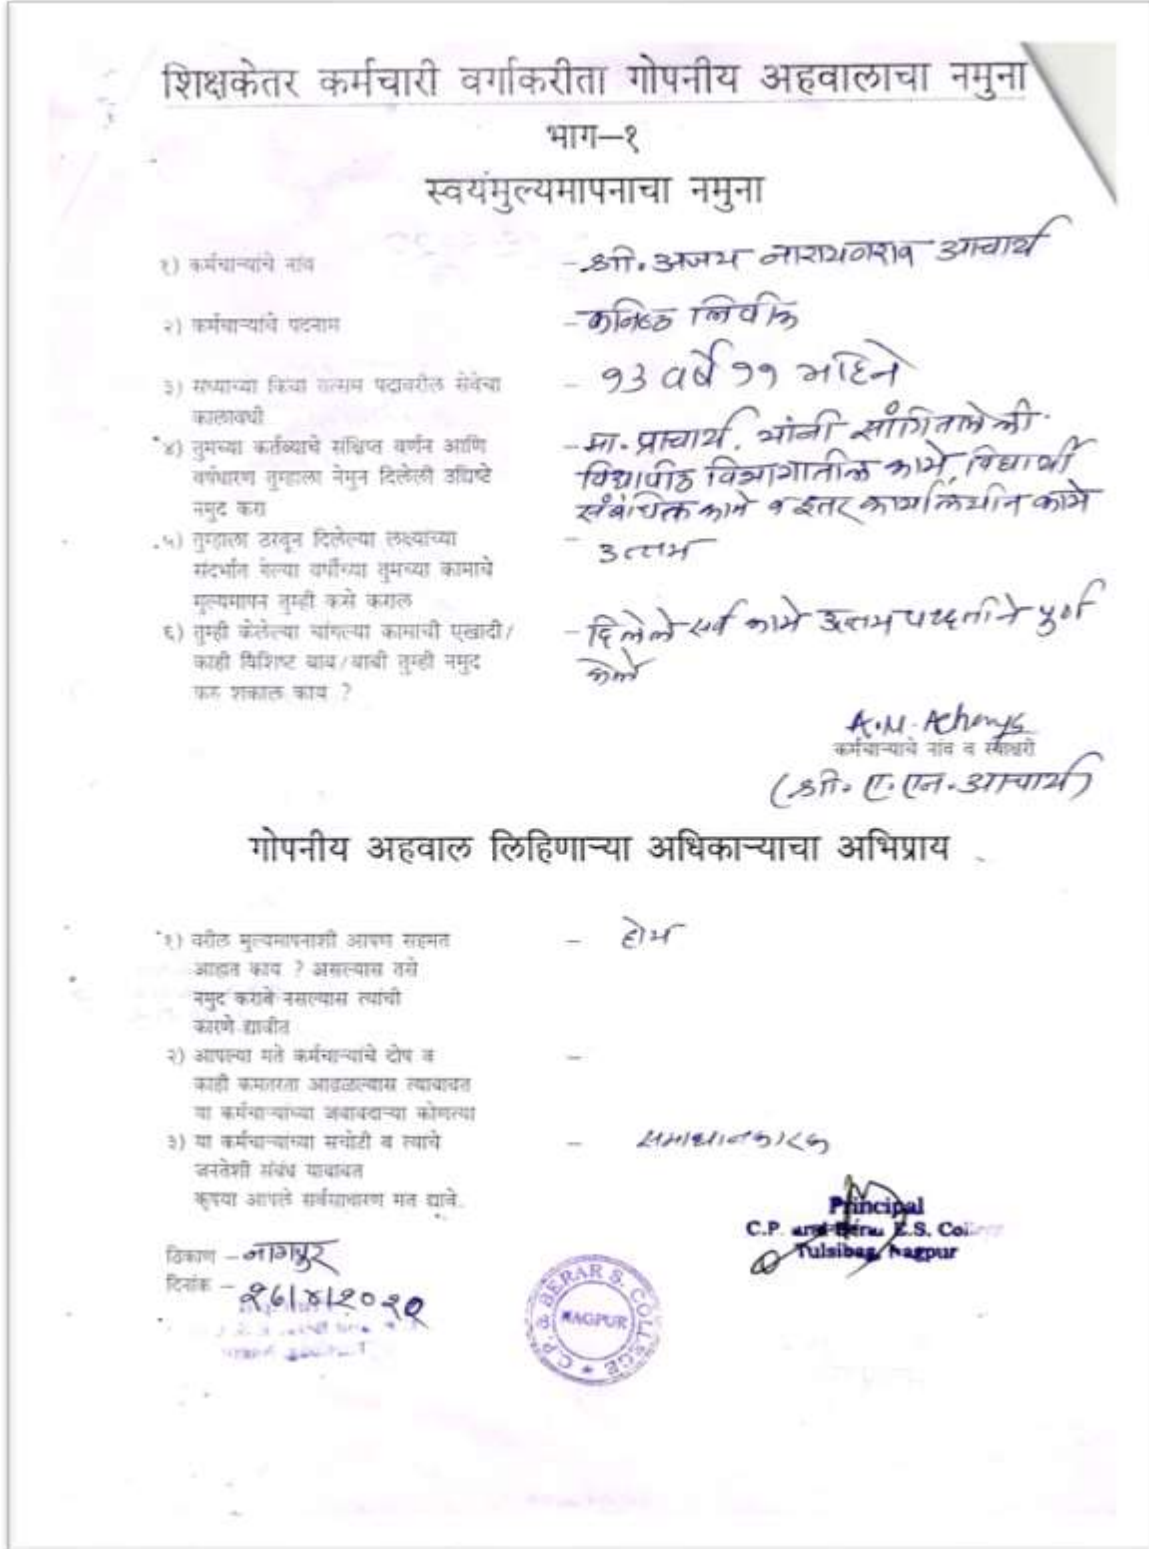 शिक्षकेतर कर्मचारी वर्गाकरीता गोपनीय अहवालाचा नमुना
भाग–१
स्वयंमुल्यमापनाचा नमुना
१) कर्मचाऱ्यांचे नांव – श्री. अजय नारायणराव आचार्य
२) कर्मचाऱ्यांचे पदनाम – कनिष्ठ लिपीक
३) सध्याच्या किंवा तत्सम पदावरील सेवेचा – १३ वर्षे ११ महिने
कालावधी
४) तुमच्या कर्तव्याचे संक्षिप्त वर्णन आणि – मा. प्राचार्य. यांनी सांगितलेली
वर्षधारण तुम्हाला नेमुन दिलेली उद्दिष्टे विद्यापीठ विभागातील कामे, विद्यार्थी
नमुद करा संबंधित कामे व इतर कार्यालयीन कामे
५) तुम्हाला ठरवून दिलेल्या लक्ष्यांच्या – उत्तम
संदर्भात गेल्या वर्षीच्या तुमच्या कामाचे
मुल्यमापन तुम्ही कसे कराल
६) तुम्ही केलेल्या चांगल्या कामाची एखादी/ – दिलेले सर्व कामे उत्तम पध्दतीने पुर्ण
काही विशिष्ट बाब/बाबी तुम्ही नमुद केले
करु शकाल काय ?
A.N. Acharya
कर्मचाऱ्याचे नांव व स्वाक्षरी
(श्री. ए. एन. आचार्य)
गोपनीय अहवाल लिहिणाऱ्या अधिकाऱ्याचा अभिप्राय
१) वरील मुल्यमापनाशी आपण सहमत – होय
आहात काय ? असल्यास तसे
नमुद करावे नसल्यास त्यांची
कारणे द्यावीत
२) आपल्या मते कर्मचाऱ्यांचे दोष व –
काही कमतरता आढळल्यास त्याबाबत
या कर्मचाऱ्यांच्या जबाबदाऱ्या कोणत्या
३) या कर्मचाऱ्यांच्या सचोटी व त्याचे – समाधानकारक
जनतेशी संबंध याबाबत
कृपया आपले सर्वसाधारण मत द्यावे.
Principal
C.P. and Berar E.S. College
Tulsibag, Nagpur
ठिकाण – नागपुर
दिनांक –
C.P. & BERAR S. COLLEGE
NAGPUR